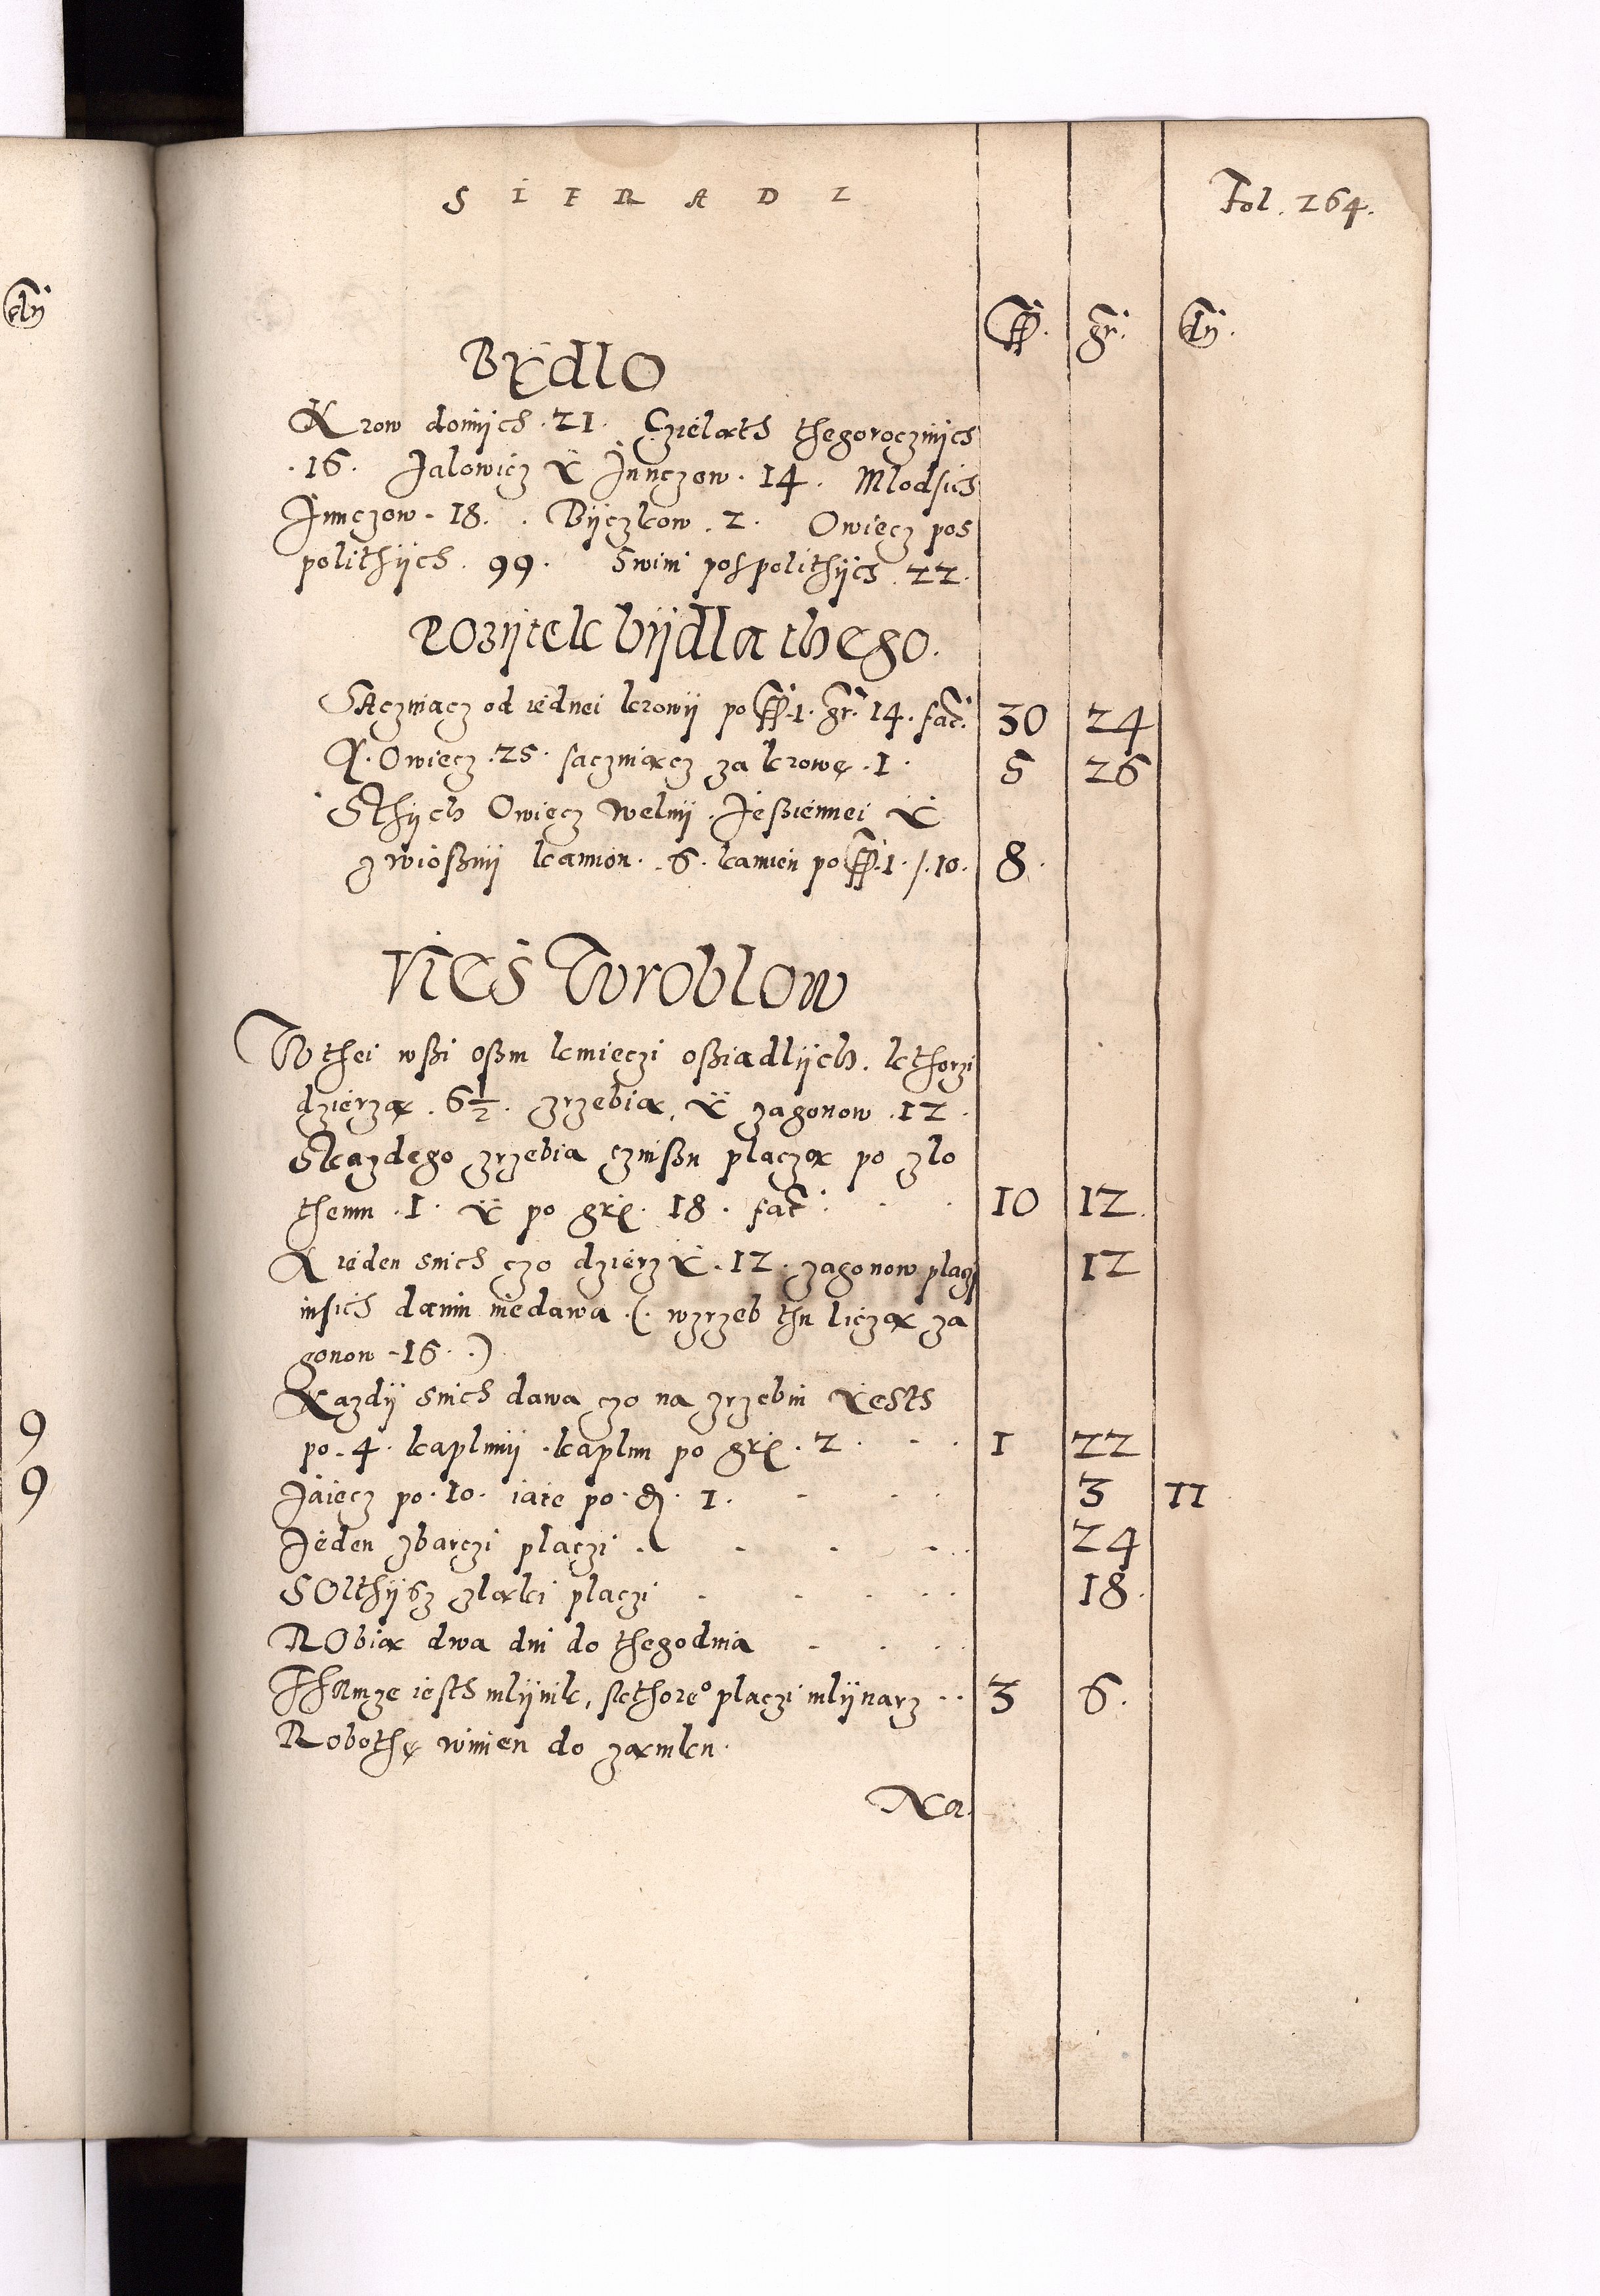 SIERADZ
Fol. 264.
ff. gr. dn.
Bydlo
Krow doinych .21. Czieląth thegorocznych
.16. Jalowicz y Junczow .14. Mlodsich
Junczow .18. Byczkow .2. Owiecz pos
polithych .99. Swini pospolithych .22.
Pozytek bydla thego.
Saczuiącz od iednei krowy po ff .1. gr. 14. fac. 30 24
A. Owiecz .25. saczuiącz za krowę .1. 5 26
Sthych Owiecz welny Jeßiennei y
z wiosßny kamion .6. kamien po ff .1. /.10. 8
Vies Wroblow
W thei wßi oßm kmieczi oßiadlych. kthorzi
dzierzą .6 1/2. zrzebia, y zagonow .12.
Skazdego zrzebia czinßu placzą po zlo
themu .1. y po gr. 18. fac. 10 12.
A ieden snich czo dzierzy .12. zagonow placzi 12
inſich danin niedawa .(. wzrzeb thu liczą za
gonow .16. .)
Kazdy snich dawa czo na zrzebiu yesth
po .4. kapluny .kaplun po gr. .2. 1 22
Jaiecz po .10. iaie po d. 1. 3 11
Jeden zbarczi placzi 24
Solthysz zląki placzi 18.
Robią dwa dni do thegodnia
Thamze iesth mlynik, skthore° placzi mlynarz 3 6.
Robothę winien do zamku.
Na.
dn
9
9